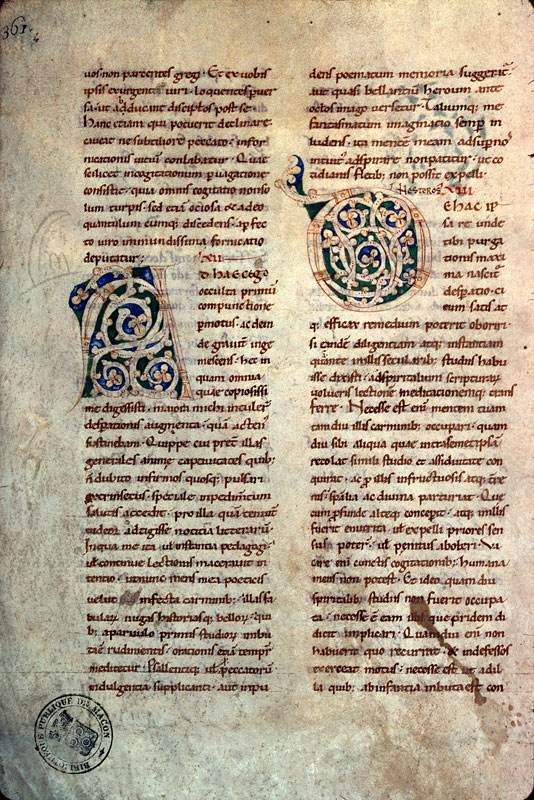 361.
uos non parcentes gregi. Et ex uobis
ipsis exurgent uiri. loquentes puer
sa. ut adducant discipłos post se.
Hanc etiam qui potuerit declinare.
cauere ne subeat peccato. infor
nicationis uiciũ conlabatur. Quae
scilicet incogitationũ puagatione
consistit. quia omnis cogitatio nonso
lum turpis. sed etiã ociosa & adeo
quantulum cumq; discedens. ipfec
to uiro immundissima fornicatio
deputatur; XII
D haec ego
occulta primũ
compunctione
pmotus. ac dein
de grauit inge
mescens. hec in
quam omnia
quae copiosissi
me digessisti. maiorẽ michi inculer̃
desperationis augmenta. quã acten'
sustinebam. Quippe cui preter illas
generales animę captiuitates quib;
ñ dubito infirmos quosq; pulsari
extrinsecus. speciale impedimentum
salutis accedit. pro illa quã tenuiter
uideor adtigisse noticia litterarũ.
Inqua me ita ut instantia pedagogi.
ut continuę lectionis macerauit in
tentio. ut nunc mens mea poeticis
uelut infecta carminib; illas fa
bularũ nugas historiasq; bellorũ. qui
b; aparuulo primis studiorũ imbu
ta ẽ rudimentis. orationis etiã tempr̃
meditetur. Psallentiq; uł p peccatorũ
indulgentia supplicanti. aut inpu
dens poematum memoria suggerit̃.
aut quasi bellantiũ heroum ante
oclos imago uersetur. Taliumq; me
fantasmatum imaginatio semp in
ludens. ita mentẽ meam adsupno'
intuit' adspirare nonpatitur. ut co
tidianis fletib; non possit expelli;
Nesteros. XIII
E hac ip
sa re unde
tibi purga
tionis maxi
ma nascit'
desperatio. ci
tum satis at
q; efficax remedium poterit oboriri.
si eandẽ diligentiam atq; instantiam
quã inte in illis secularib; studiis habu
isse dixisti. ad spiritalium scripturarũ
uolueris lectionẽ meditationemq; trans
ferre. Necesse est enĩ mentem tuam
tam diu illis carminib; occupari. quam
diu sibi aliqua quae intrasemetipsã
recolat simili studio et assiduitate con
quirat. ac p illis infructuosis atq; terre
nis. spãlia ac diuina parturiat. Que
cum pfunde alteq; concepit. atq; in illis
fuerit enutrita. uł expelli priores sen
sus poter'. uł penitus aboleri. Va
care eni cunctis cogitationib; humana
mens non potest. Et ideo quam diu
spiritalib; studiis non fuerit occupa
ta. necesse ẽ eam illis quę pridem di
dicit implicari. Quam diu eni non
habuerit quo recurrat. & indefessos
exerceat motus. necesse est ut ad il
la quib; ab infantia inbuta est con
BIBLIOTHEQUE PUBLIQUE DE MACON